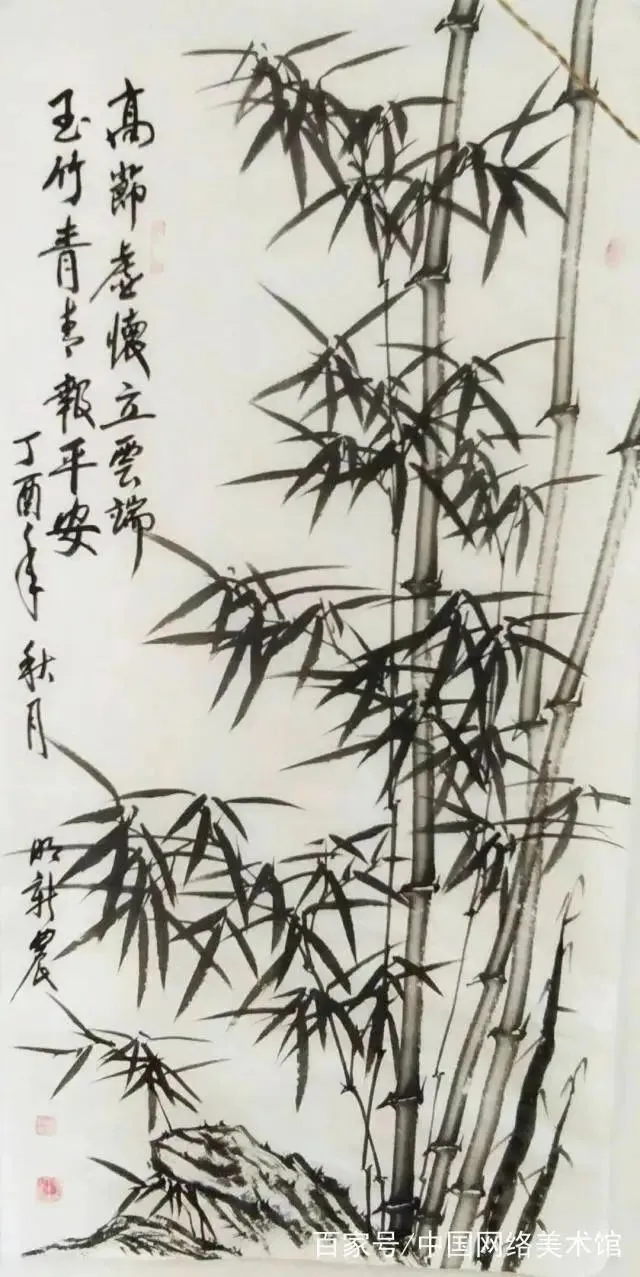 高節虛懷立雲端
玉竹青青報平安
丁酉年 秋月
新農
百家号/中国网络美术馆